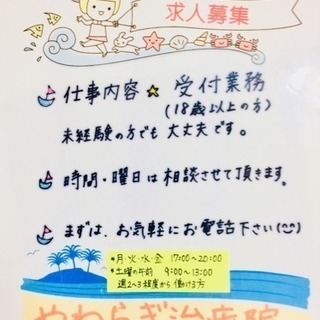 求人募集
仕事内容☆受付業務
(18歳以上の方)
未経験の方でも大丈夫です。
時間・曜日は相談させて頂きます。
まずは、お気軽にお電話下さい(^^)
*月・火・水・金 17:00~20:00
*土曜の午前 9:00~13:00
週2~3程度から働ける方
やわらぎ治療院